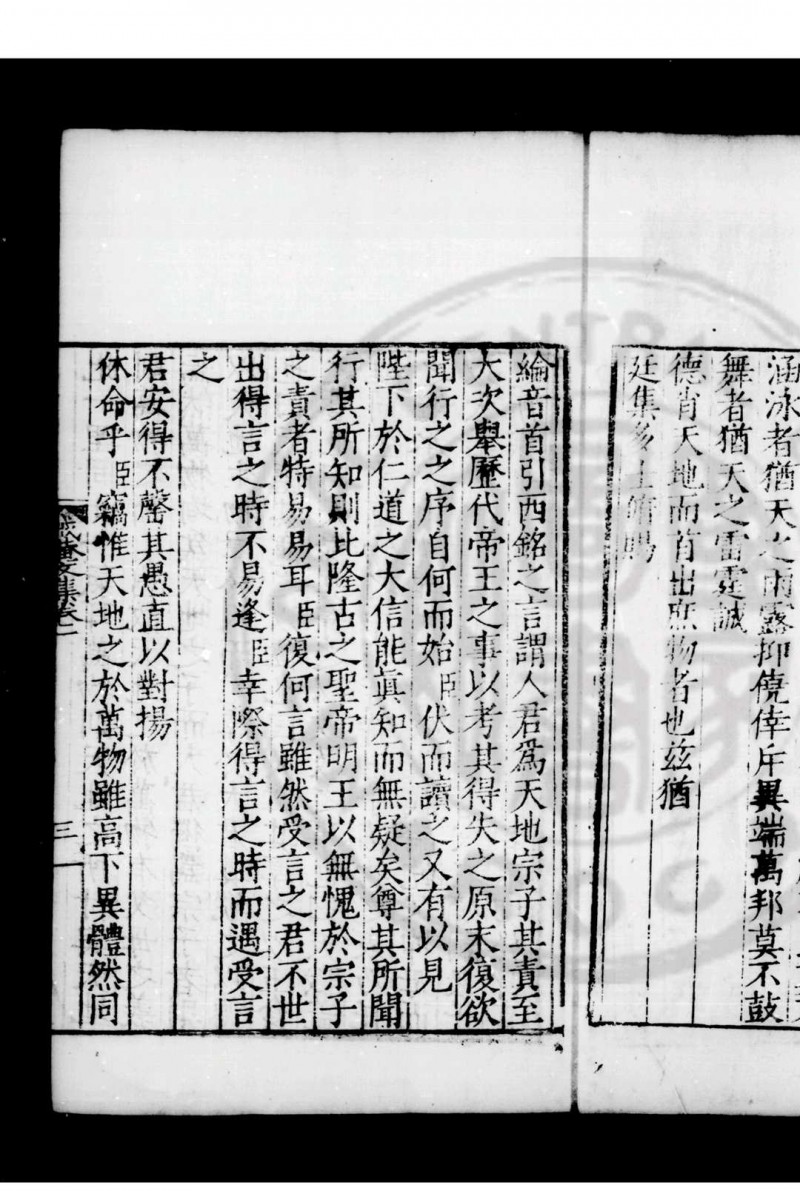 涵泳者猶天之雨露抑僥倖斥異端萬邦莫不鼓
舞者猶天之雷霆誠
德肖天地而首出庶物者也茲猶
廷集多士俯賜
綸音首引西銘之言謂人君爲天地宗子其責至
大次舉歷代帝王之事以考其得失之原末復欲
聞行之之序自何而始臣伏而讀之又有以見
陛下於仁道之大信能眞知而無疑矣尊其所聞
行其所知則比隆古之聖帝明王以無愧於宗子
之責者特易易耳臣復何言雖然受言之君不世
出得言之時不易逢臣幸際得言之時而遇受言
之
君安得不罄其愚直以對揚
休命乎臣竊惟天地之於萬物雖高下異體然同
文集卷一
三